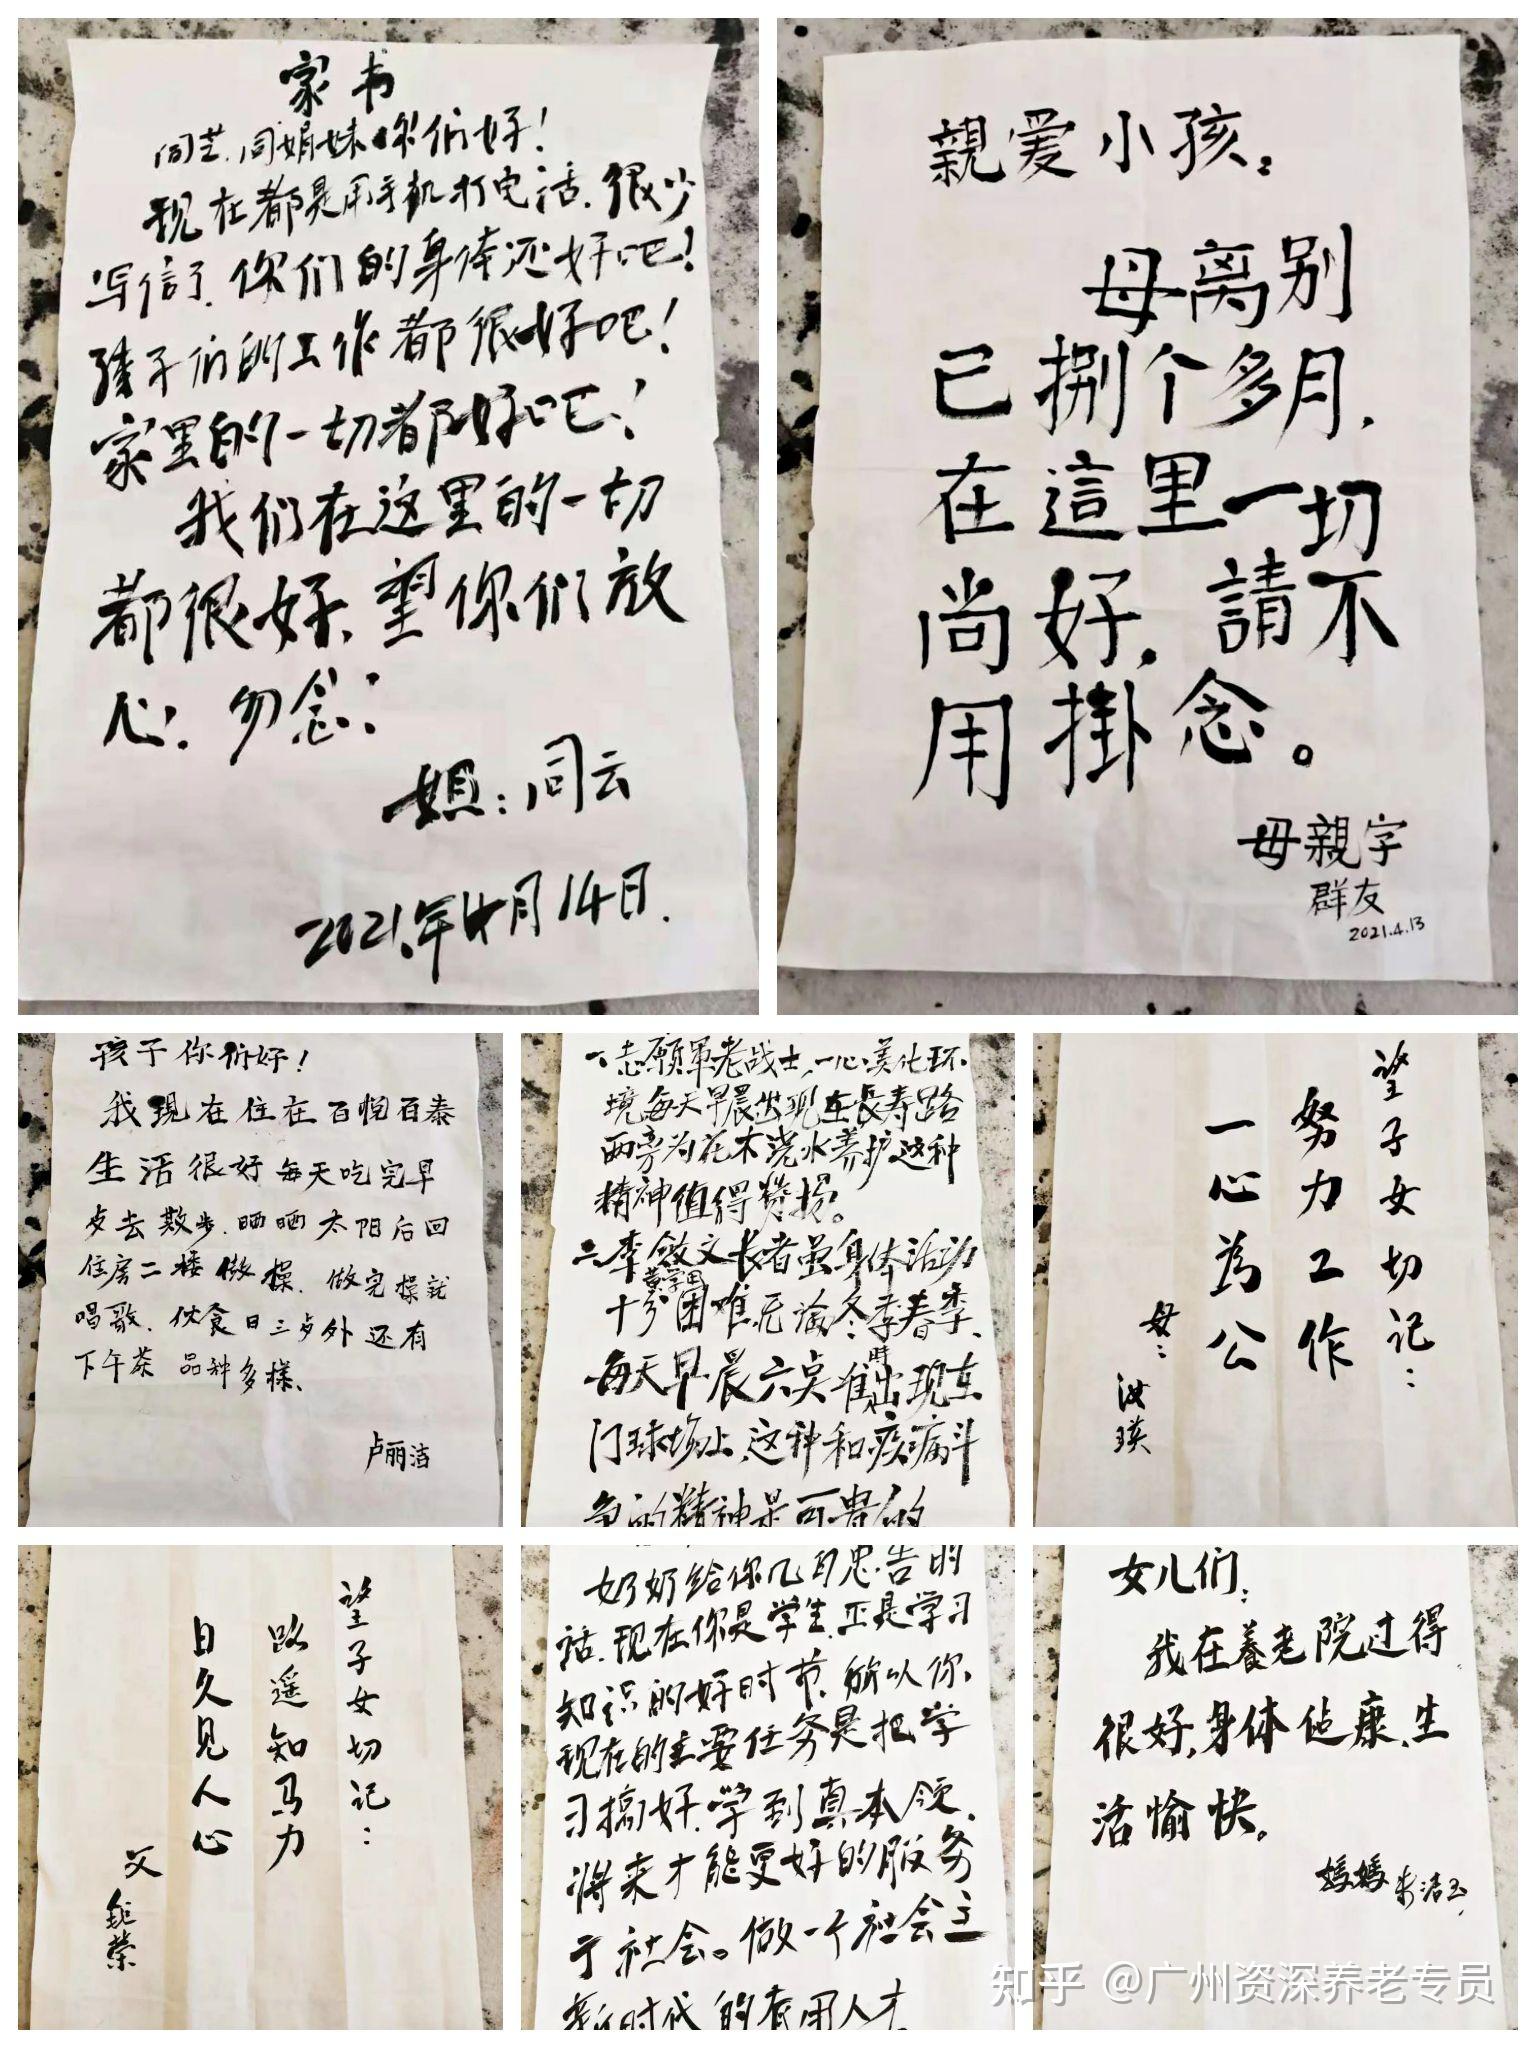 家书
同芝.同娟妹你们好！
现在都是用手机打电话.很少
写信了.你们的身体还好吧！
孩子们的工作都很好吧！
家里的一切都好吧！
我们在这里的一切
都很好.望你们放
心！勿念！
姐：同云
2021年4月14日.
親爱小孩：
母离别
已捌个多月.
在這里一切
尚好.請不
用掛念。
母親字
群友
2021.4.13
孩子你们好！
我现在住在百悦百泰
生活很好每天吃完早
歺去散步.晒晒太阳后回
住房二楼做操.做完操就
唱歌.伙食日三歺外还有
下午茶品种多樣、
卢丽洁
一、志願軍老战士,一心美化环
境每天早晨出现在长寿路
两旁为花木浇水养护这种
精神值得赞扬。
二、李敛文长者虽身体活动
黄学田
十分困难.无论冬季春季、
每天早晨六点准时出现在
门球场上.这种和疾病斗
争的精神是可贵的
望子女切记：
努力工作
一心為公
母：
汝瑛
望子女切记：
路遥知马力
日久见人心
父
鉅荣
奶奶给你几句忠告的
话.现在你是学生.正是学习
知识的好时节.所以你
现在的主要任务是把学
习搞好.学到真本领.
将来才能更好的服务
于社会。做一个社会主
新时代的有用人才
女儿们：
我在養老院过得
很好,身体健康、生
活愉快。
媽媽 洁玉
知乎 @广州资深养老专员